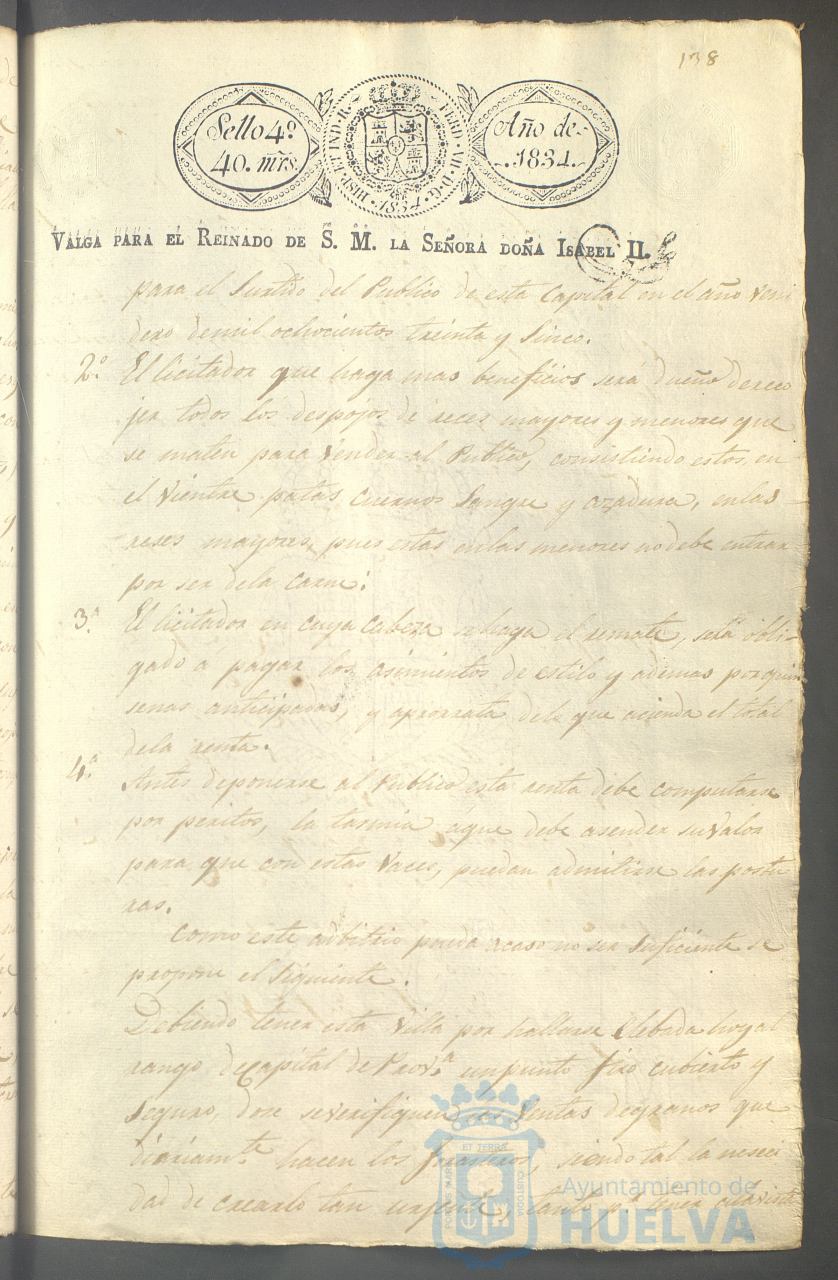 138
Sello 4º
40. mrs.
HISP. ET IND. R. FERD. VII. D. G. 1834
Año de
1834.
VALGA PARA EL REINADO DE S. M. LA SEÑORA DOÑA ISABEL II.
para el Surtido del Publico de esta Capital en el año veni
dero demil ochocientos treinta y Sinco.
2ª El licitador que haga mas beneficios será dueño dereco
jer todos los despojos de reces mayores y menores que
se maten para vender al Publico, consistiendo estos, en
el Vientre patas Cuernos Sangre y azadura, enlas
reses mayores, pues estas enlas menores nodebe entrar
por ser dela Carne.
3ª El licitador en cuya Cabeza sehaga el remate, será obli-
gado a pagar los asimientos de estilo y ademas porquin
senas anticipadas, y aprorrata dela que acienda el total
dela renta.
4ª Antes deponerse al Publico esta renta debe computarse
por peritos, la tasmia aque debe asender suvalor
para que con estas Vaces, puedan admitirse las postu
ras.
Como este adbitrio pueda acaso no ser Suficiente se
propone el Siguiente.
Debiendo tener esta Villa por hallarse Elebada hoy al
rango deCapital de Provª unpunto fixo cubierto y
Seguro, dose severifiquen las Ventas degranos que
diariamte hacen los forasteros, siendo tal la nesesi
dad de crearlo tan urgente tanto pª tener alavista
PORTUS MARIS ET TERRÆ CUSTODIA
Ayuntamiento de
HUELVA